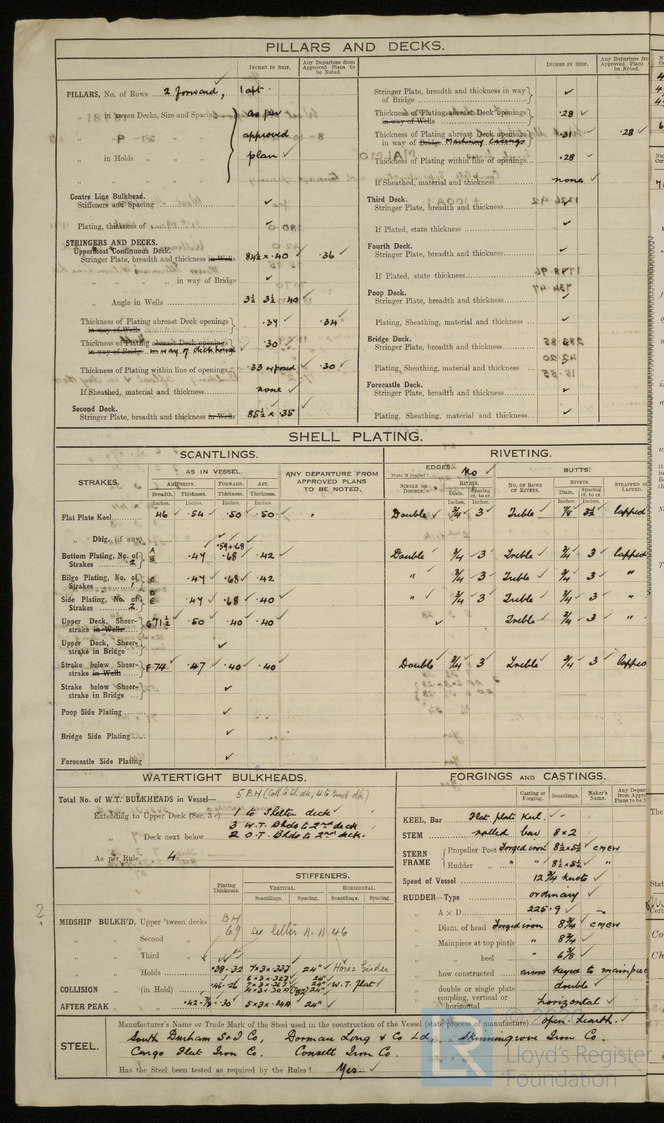 PILLARS AND DECKS.
INCHES IN SHIP.
Any Departure from Approved Plans to be Noted.
PILLARS, No. of Rows 2 forward, 1 aft.
in 'tween Decks, Size and Spacing as per
" " " approved
in Holds " " plan
Centre Line Bulkhead.
Stiffeners and Spacing
Plating, thickness of
STRINGERS AND DECKS.
Uppermost Continuous Deck.
Stringer Plate, breadth and thickness in Wells 84½ × .40 .36
" " " " in way of Bridge
" Angle in Wells 3½ 3½ .40
Thickness of Plating abreast Deck openings in way of Wells .37 .34
Thickness of Plating abreast Deck openings in way of Bridge in way of deck house .30
Thickness of Plating within line of openings .33 .30
If Sheathed, material and thickness none
Second Deck.
Stringer Plate, breadth and thickness in Wells 85½ × .35
INCHES IN SHIP.
Stringer Plate, breadth and thickness in way of Bridge
Thickness of Plating abreast Deck openings in way of Wells .28
Thickness of Plating abreast Deck openings in way of Bridge Machinery Casings .31 .28
Thickness of Plating within line of openings .28
If Sheathed, material and thickness none
Third Deck.
Stringer Plate, breadth and thickness
If Plated, state thickness
Fourth Deck.
Stringer Plate, breadth and thickness
If Plated, state thickness
Poop Deck.
Stringer Plate, breadth and thickness
Plating, Sheathing, material and thickness
Bridge Deck.
Stringer Plate, breadth and thickness
Plating, Sheathing, material and thickness
Forecastle Deck.
Stringer Plate, breadth and thickness
Plating, Sheathing, material and thickness
SHELL PLATING.
SCANTLINGS. RIVETING.
STRAKES. AS IN VESSEL. ANY DEPARTURE FROM APPROVED PLANS TO BE NOTED.
EDGES. No BUTTS.
AMIDSHIPS. FORWARD. AFT.
Breadth. Thickness. Thickness. Thickness.
SINGLE OR DOUBLE. RIVETS. NO. OF ROWS OF RIVETS. RIVETS. STRAPPED OR LAPPED.
Diam. Spacing cr. to cr. Diam. Spacing cr. to cr.
Inches. Inches. Inches. Inches.
Flat Plate Keel 46 .54 .50 .50 Double ¾ 3 Treble ⅞ 3½ lapped
" Dblg. (if any)
.59+.68
Bottom Plating, No. of Strakes 2 A B .47 .68 .42 Double ¾ 3 Treble ¾ 3 lapped
Bilge Plating, No. of Strakes 1 C .47 .68 .42 " ¾ 3 Treble ¾ 3 "
Side Plating, No. of Strakes 2 D E .47 .68 .40 " ¾ 3 Treble ¾ 3 "
Upper Deck, Sheerstrake in Wells G 71½ .50 .40 .40 Treble ¾ 3 "
Upper Deck, Sheerstrake in Bridge
Strake below Sheerstrake in Wells F 74 .47 .40 .40 Double ¾ 3 Treble ¾ 3 lapped
Strake below Sheerstrake in Bridge
Poop Side Plating
Bridge Side Plating
Forecastle Side Plating
WATERTIGHT BULKHEADS.
Total No. of W.T. BULKHEADS in Vessel— 5 BH (Coll to sh dk, 4 to 2nd dk)
Extending to Upper Deck (Sec. 3 c) 1 to Shelter deck
3 W.T. Bhds to 2nd deck
" Deck next below 2 O.T. Bhds to 2nd deck.
As per Rule 4
STIFFENERS.
Plating Thickness. VERTICAL. HORIZONTAL.
Scantlings. Spacing. Scantlings. Spacing.
MIDSHIP BULKH'D, Upper 'tween decks BH
" " Second " 69 see letter 11.11.46
" " Third "
" " Holds .38-.32 7×3×.337 24" Horiz Girder
COLLISION " (in Hold) .46-.26 24" W.T. flat
AFTER PEAK " .42-.30 5×3×.34A 24"
2
FORGINGS AND CASTINGS.
Casting or Forging. Scantlings. Maker's Name.
KEEL, Bar Flat plate Keel.
STEM rolled bar 8×2
STERN FRAME Propeller Post Forged iron 8½×5½ CMEW
Rudder " " 8½×5½ "
Speed of Vessel 12¾ knots
RUDDER—Type ordinary
" A × D 225.9
" Diam. of head Forged iron 8¾ CMEW
" Mainpiece at top pintle " 8¾
" " heel " 6⅞
" how constructed arms keyed to mainpiece
" double or single plate double
" coupling, vertical or horizontal horizontal
STEEL. Manufacturer's Name or Trade Mark of the Steel used in the construction of the Vessel (state process of manufacture) open hearth.
South Durham S & I Co, Dorman Long & Co Ld, Skinningrove Iron Co.
Cargo Fleet Iron Co. Consett Iron Co.
Has the Steel been tested as required by the Rules? Yes.
© 2020
Lloyd's Register
Foundation